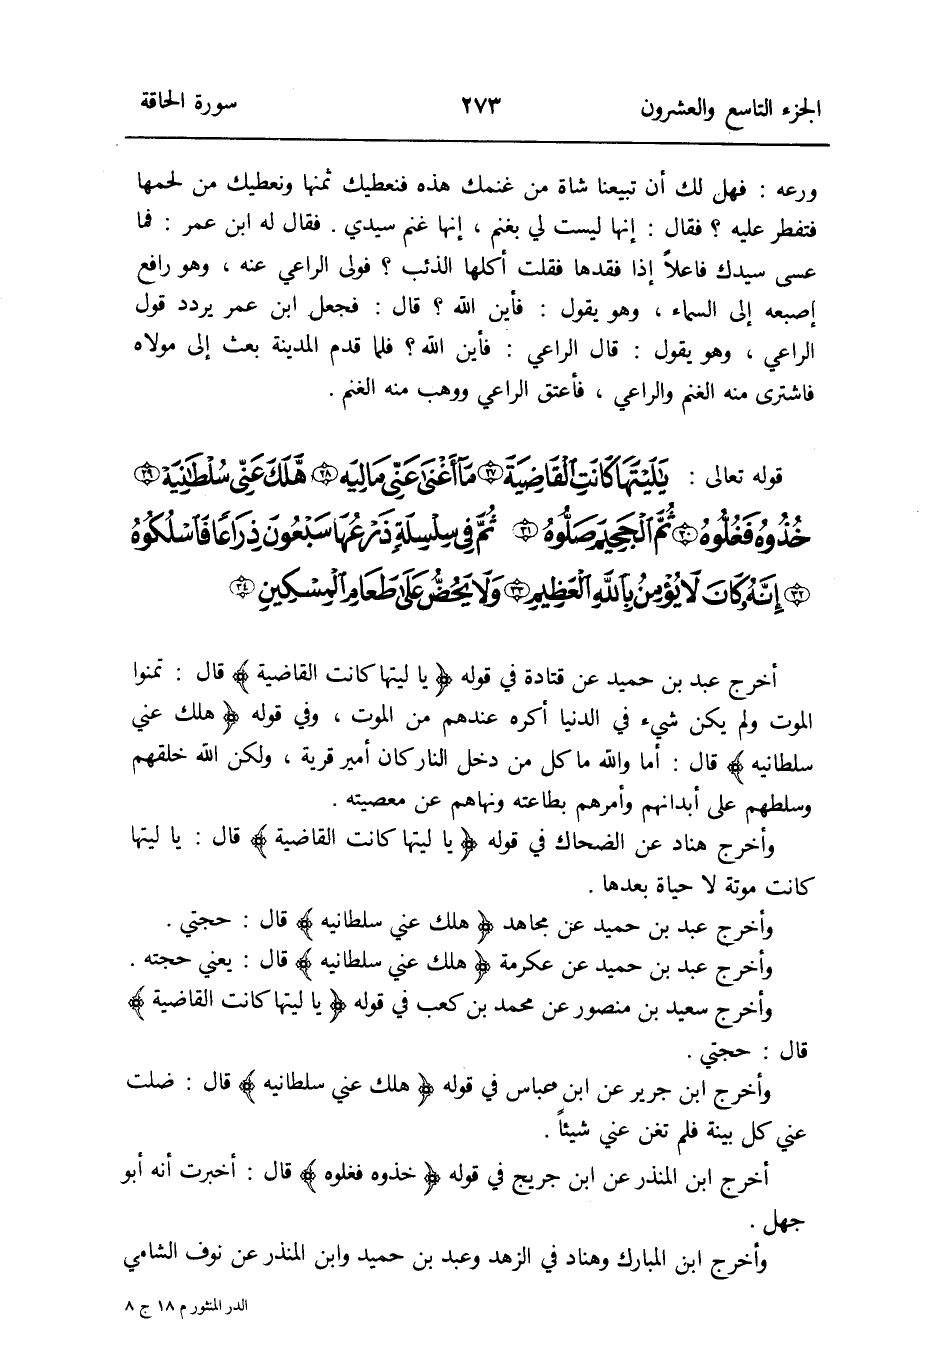 الجزء التاسع والعشرون ٢٧٣ سورة الحاقة
ورعه : فهل لك أن تبيعنا شاة من غنمك هذه فنعطيك ثمنها ونعطيك من لحمها
فتفطر عليه ؟ فقال : إنها ليست لي بغنم ، إنها غنم سيدي . فقال له ابن عمر : فما
عسى سيدك فاعلاً إذا فقدها فقلت أكلها الذئب ؟ فولى الراعي عنه ، وهو رافع
إصبعه إلى السماء ، وهو يقول : فأين الله ؟ قال : فجعل ابن عمر يردد قول
الراعي ، وهو يقول : قال الراعي : فأين الله ؟ فلما قدم المدينة بعث إلى مولاه
فاشترى منه الغنم والراعي ، فأعتق الراعي ووهب منه الغنم .
قوله تعالى : يَٰلَيْتَهَا كَانَتِ ٱلْقَاضِيَةَ ٢٧ مَآ أَغْنَىٰ عَنِّى مَالِيَهْ ٢٨ هَّلَكَ عَنِّى سُلْطَٰنِيَهْ ٢٩
خُذُوهُ فَغُلُّوهُ ٣٠ ثُمَّ ٱلْجَحِيمَ صَلُّوهُ ٣١ ثُمَّ فِى سِلْسِلَةٍ ذَرْعُهَا سَبْعُونَ ذِرَاعًا فَٱسْلُكُوهُ
٣٢ إِنَّهُۥ كَانَ لَا يُؤْمِنُ بِٱللَّهِ ٱلْعَظِيمِ ٣٣ وَلَا يَحُضُّ عَلَىٰ طَعَامِ ٱلْمِسْكِينِ ٣٤
أخرج عبد بن حميد عن قتادة في قوله ﴿ يا ليتها كانت القاضية ﴾ قال : تمنوا
الموت ولم يكن شيء في الدنيا أكره عندهم من الموت ، وفي قوله ﴿ هلك عني
سلطانيه ﴾ قال : أما والله ما كل من دخل النار كان أمير قرية ، ولكن الله خلقهم
وسلطهم على أبدانهم وأمرهم بطاعته ونهاهم عن معصيته .
وأخرج هناد عن الضحاك في قوله ﴿ يا ليتها كانت القاضية ﴾ قال : يا ليتها
كانت موتة لا حياة بعدها .
وأخرج عبد بن حميد عن مجاهد ﴿ هلك عني سلطانيه ﴾ قال : حجتي .
وأخرج عبد بن حميد عن عكرمة ﴿ هلك عني سلطانيه ﴾ قال : يعني حجته .
وأخرج سعيد بن منصور عن محمد بن كعب في قوله ﴿ يا ليتها كانت القاضية ﴾
قال : حجتي .
وأخرج ابن جرير عن ابن عباس في قوله ﴿ هلك عني سلطانيه ﴾ قال : ضلت
عني كل بينة فلم تغن عني شيئاً .
أخرج ابن المنذر عن ابن جريج في قوله ﴿ خذوه فغلوه ﴾ قال : أخبرت أنه أبو
جهل .
وأخرج ابن المبارك وهناد في الزهد وعبد بن حميد وابن المنذر عن نوف الشامي
الدر المنثور م ١٨ ج ٨